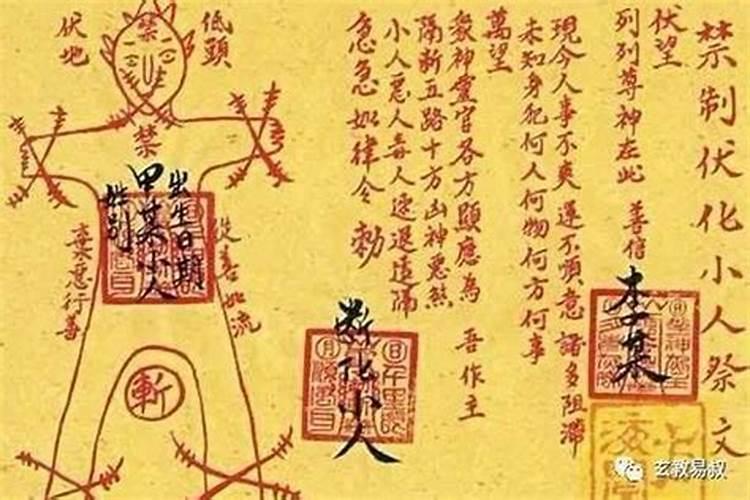 禁制伏化小人祭文
伏望
列列尊神在此 善信
李某
現今人事不爽運不順意諸多阻滞
未知身犯何人何物何方何事
萬望
衆神靈官各方顯應為 吾作主
隔斷五路十方凶神惡煞
小人惡人毒人速退遠隔
急急如律令 勅
斷化小人
低頭
伏地
禁
禁
出生日期
甲某小人
姓别
從善如流
棄惡行善
斬
玄教易叔